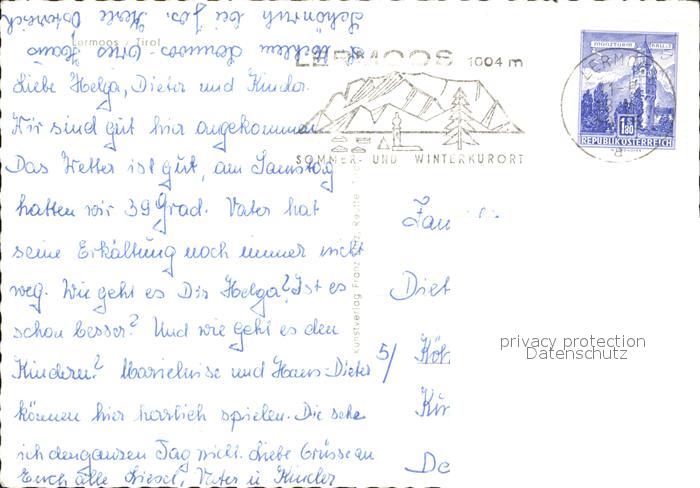 Schönrich bei Jos. Hosle Österreich
Lermoos Haus
Lermoos Tirol
LERMOOS 1004 m
SOMMER- UND WINTERKURORT
MÜNZTURM HALL I. T.
LERMOOS
1.80
REPUBLIK ÖSTERREICH
Liebe Helga, Dieter und Kinder.
Wir sind gut hier angekommen
Das Wetter ist gut, am Samstag
hatten wir 39 Grad. Vater hat
seine Erkältung noch immer nicht
weg. Wie geht es Dir Helga? Ist es
schon besser? Und wie geht es den
Kindern? Marieluise und Hans-Dieter
können hier herrlich spielen. Die sehe
ich den ganzen Tag nicht. Liebe Grüsse an
Euch alle Liesel, Vater u Kinder
Kunstverlag Franz Reutte
Fam
Diet
5/ Köh
Kir
De
privacy protection
Datenschutz